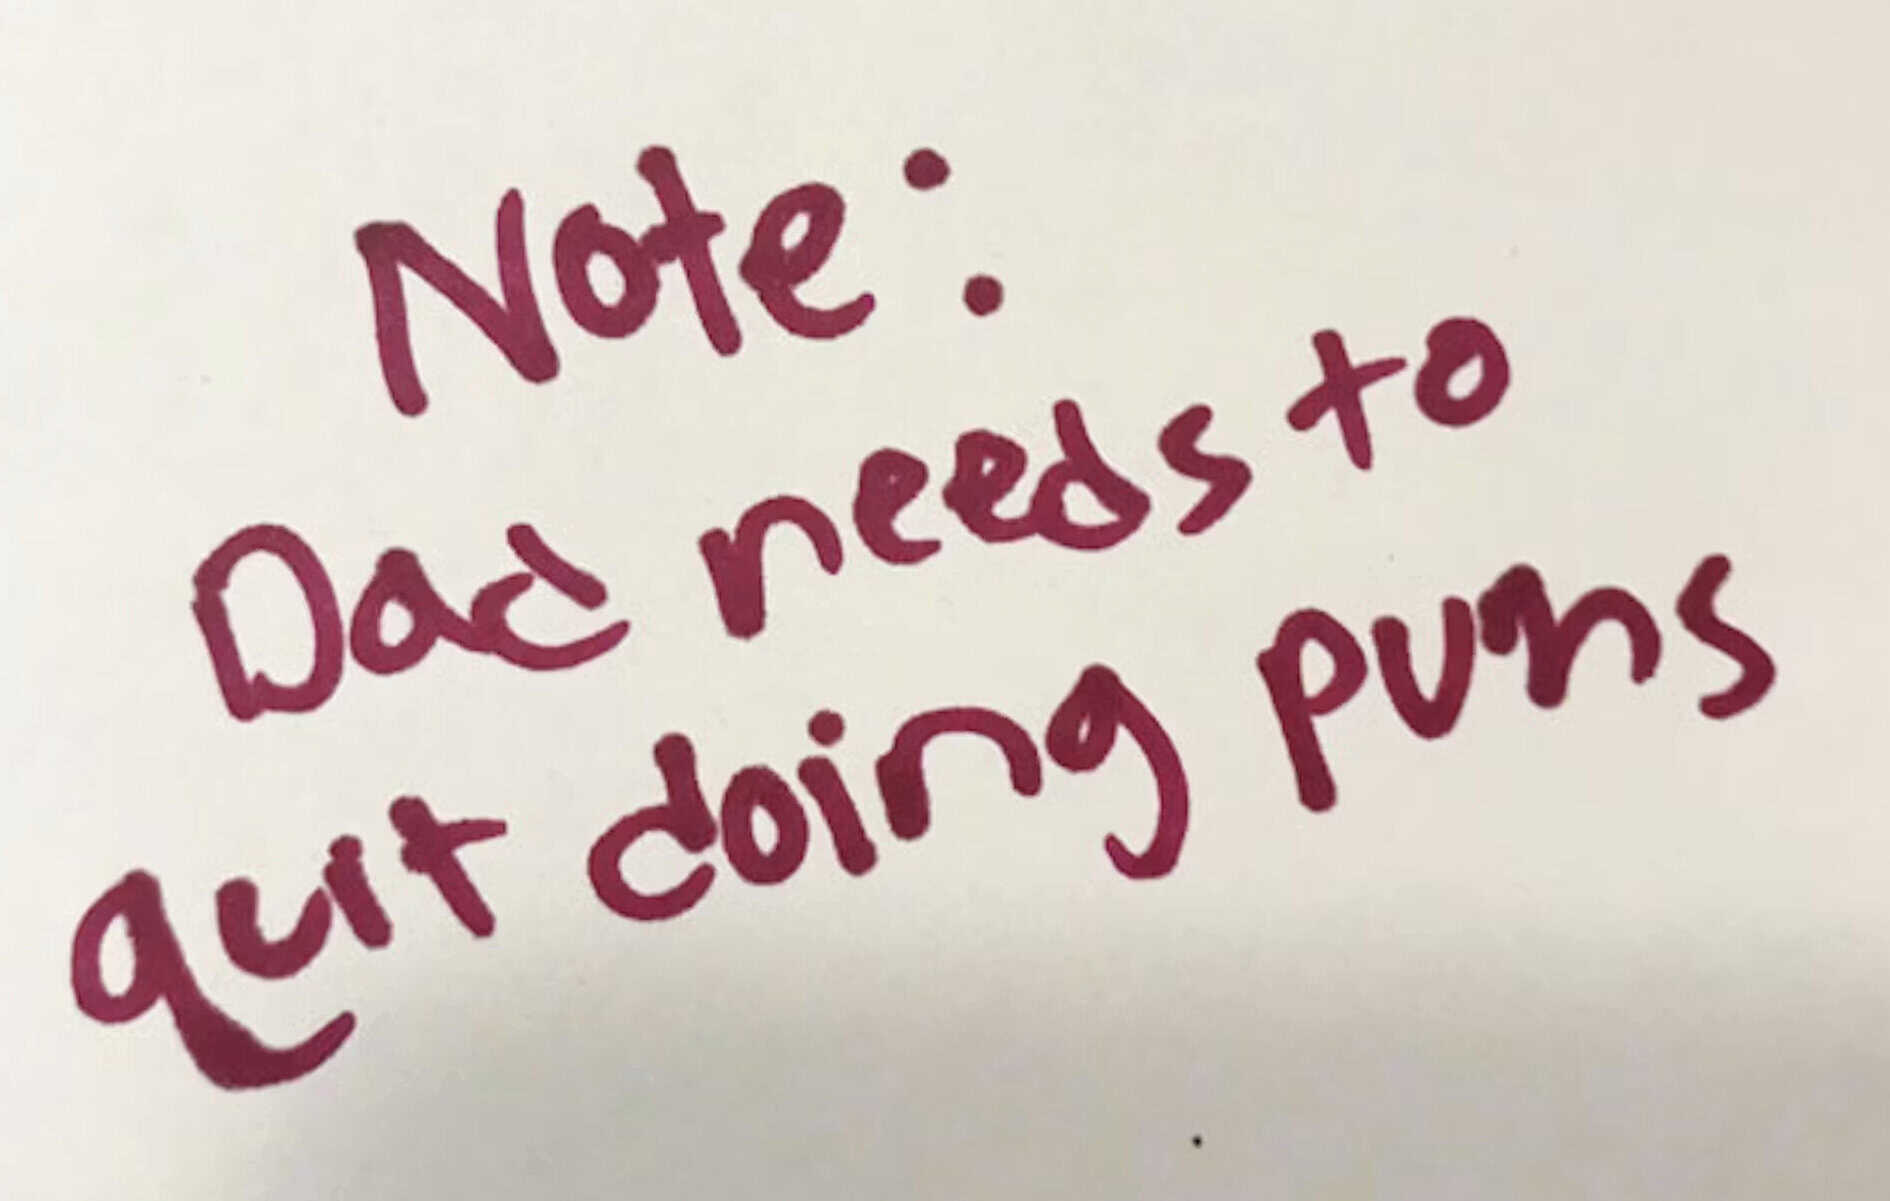 Note:
Dad needs to
quit doing puns